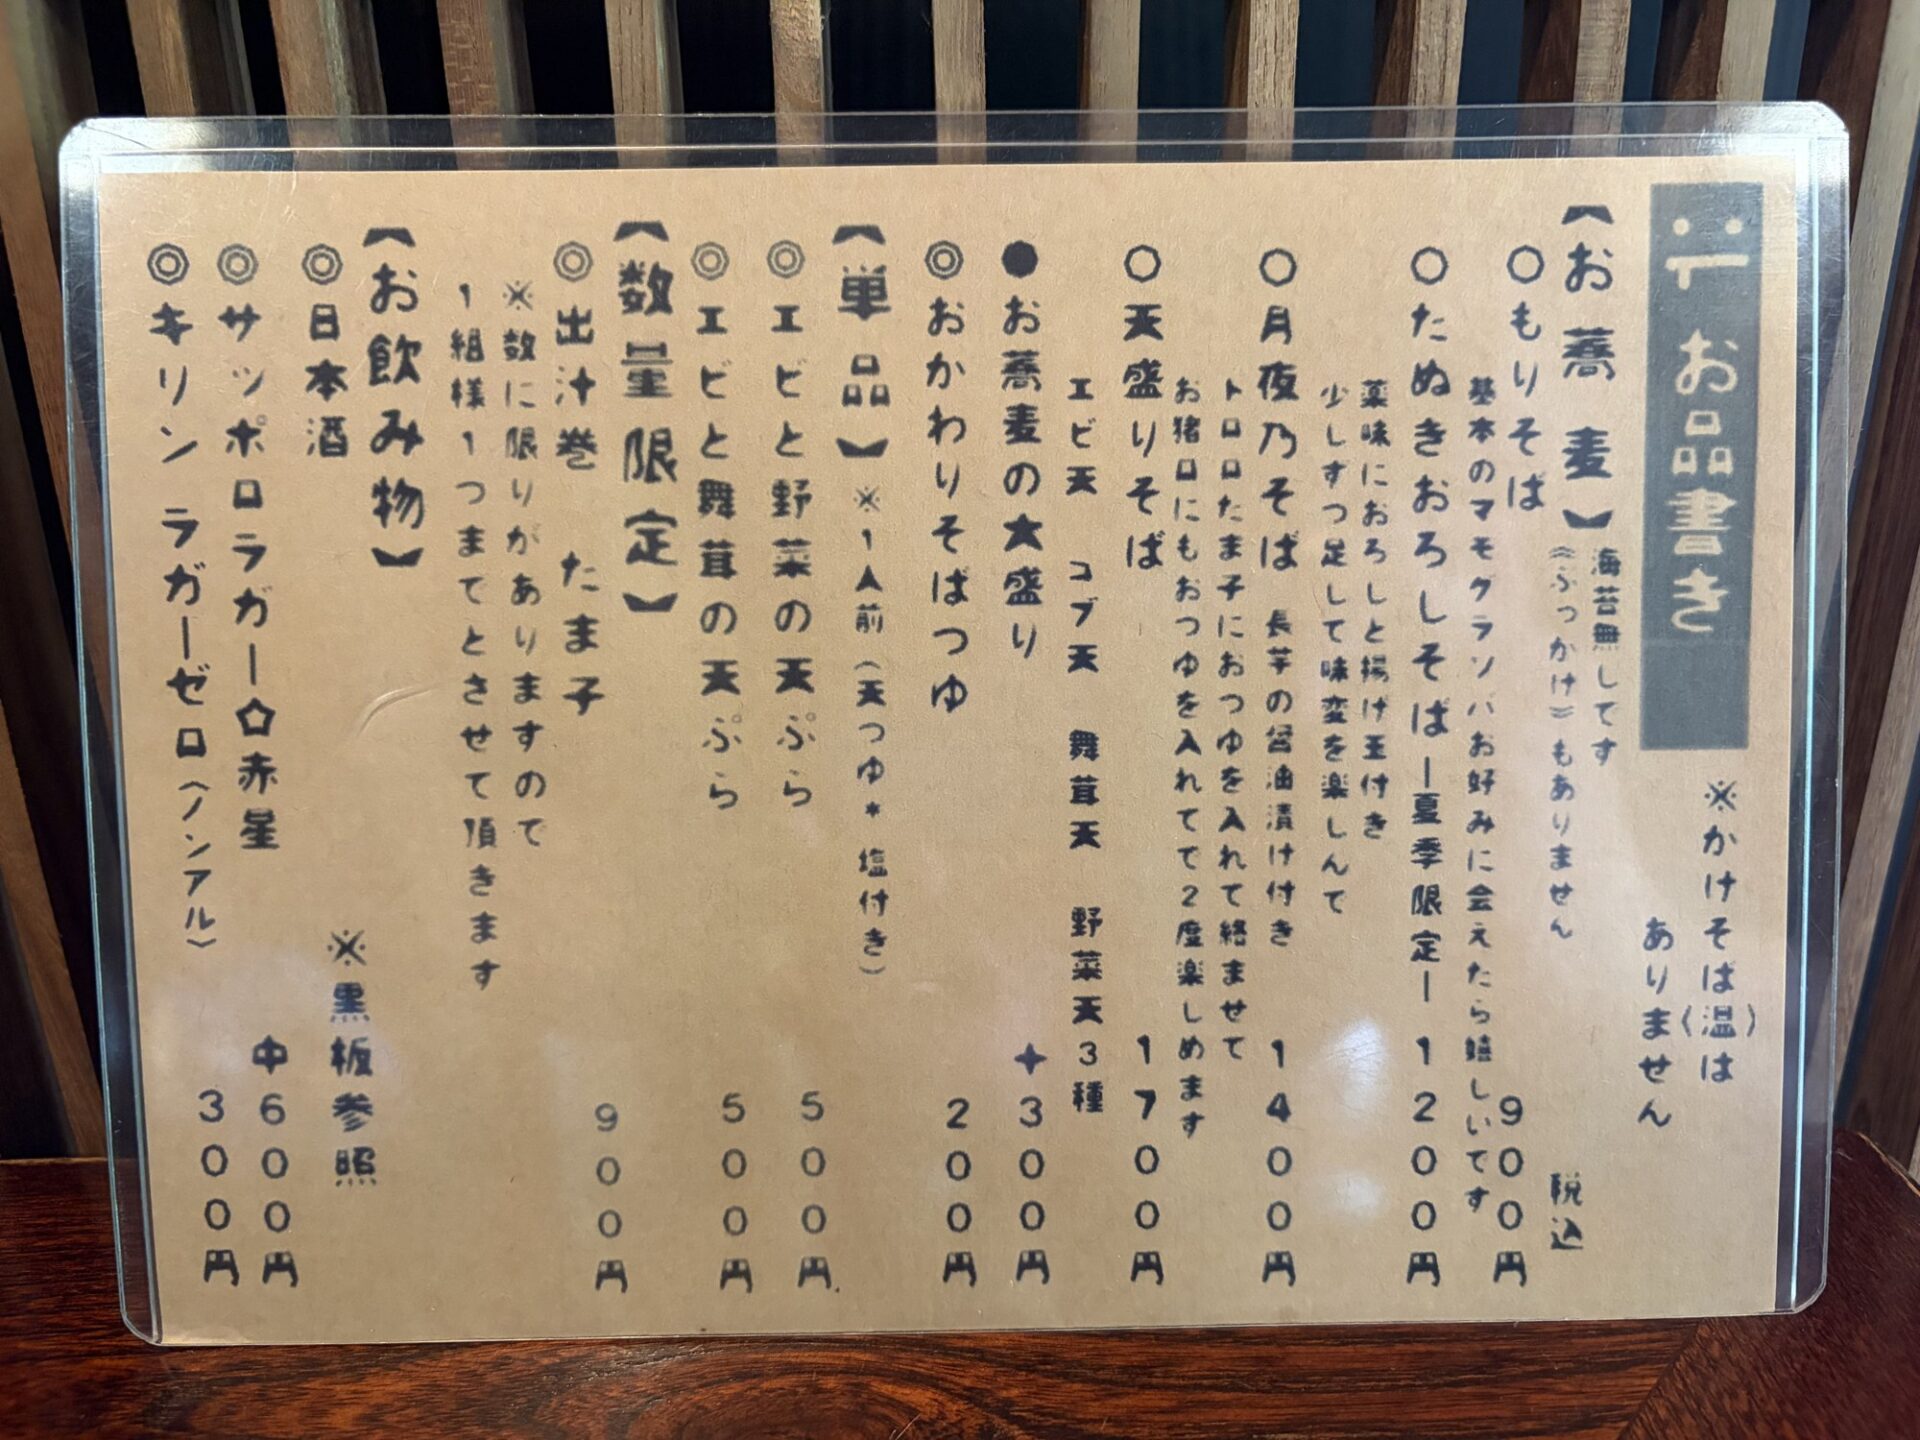 お品書き
※かけそば(温)は
ありません
【お蕎麦】
海苔無しです
《ぶっかけ》もありません
税込
○もりそば 900円
基本のマモクラソバお好みに会えたら嬉しいです
○たぬきおろしそば ー夏季限定ー 1200円
薬味におろしと揚げ玉付き
少しずつ足して味変を楽しんで
○月夜乃そば 長芋の醤油漬け付き 1400円
トロロたま子におつゆを入れて絡ませて
お猪口にもおつゆを入れてで2度楽しめます
○天盛りそば 1700円
エビ天 コブ天 舞茸天 野菜天3種
●お蕎麦の大盛り +300円
◎おかわりそばつゆ 200円
【単品】※1人前(天つゆ*塩付き)
◎エビと野菜の天ぷら 500円
◎エビと舞茸の天ぷら 500円
【数量限定】
◎出汁巻 たま子 900円
※数に限りがありますので
1組様1つまでとさせて頂きます
【お飲み物】
◎日本酒 ※黒板参照
◎サッポロラガー☆赤星 中600円
◎キリン ラガーゼロ(ノンアル) 300円